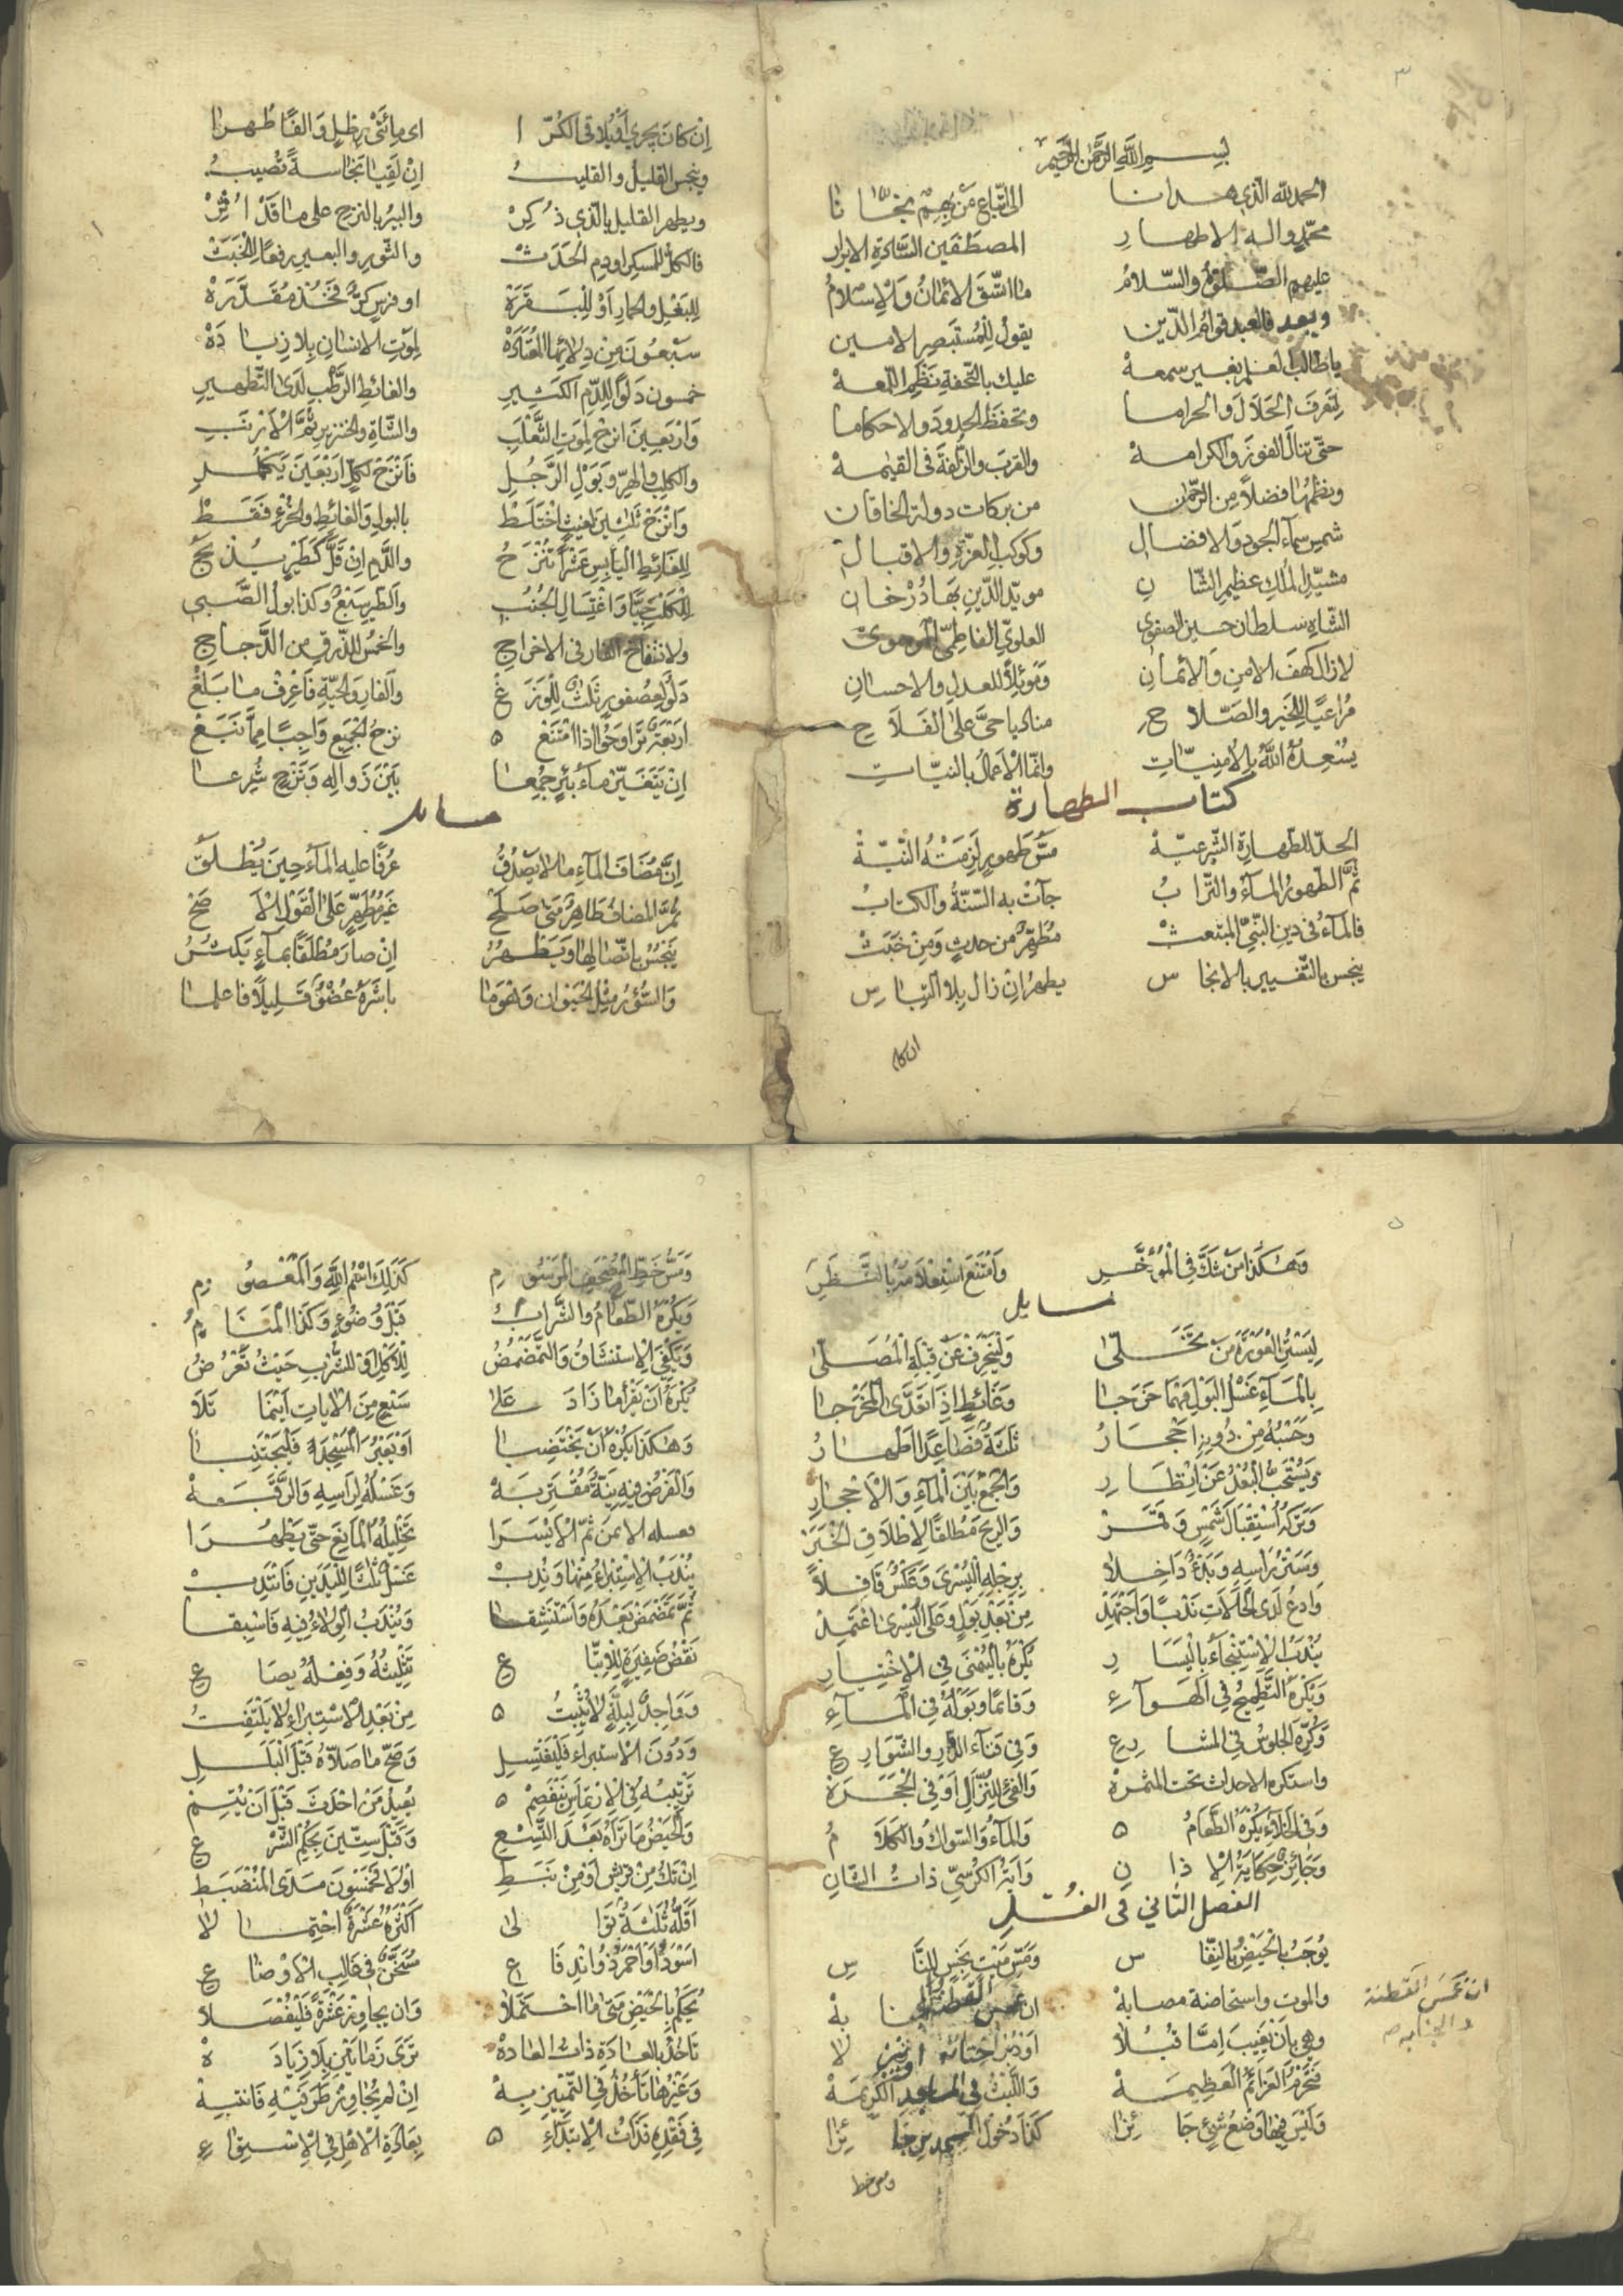 بسم الله الرحمن الرحيم
الحمد لله الذي هدانا الى اتباع من بهم نجانا
محمد واله الاطهار المصطفين السادة الابرار
عليهم الصلوة والسلام ما اتسق الايمان والاسلام
وبعد فالعبد قوام الدين يقول للمستبصر الامين
ياطالب العلم بغير سمعه عليك بالتحفة نظم اللمعه
لتعرف الحلال والحراما وتحفظ الحدود والاحكاما
حتى تنال الفوز والكرامه والقرب والزلفة في القيمه
ونظمها فضلا من الرحمن من بركات دولة الخاقان
شمس سماء الجود والافضال وكوكب العزة والاقبال
مشيد الملك عظيم الشان مويد الدين بهادر خان
الشاه سلطان حسين الصفوي العلوي الفاطمي الموسوي
لازال كهف الامن والايمان وموئلا للعدل والاحسان
مراعيا للخير والصلاح مناديا حي على الفلاح
يسعده الله بالامنيات وانما الاعمال بالنيات
كتاب الطهارة
الحد للطهارة الشرعية مس طهور لزمته النية
ثم الطهور الماء والتراب جآت به السنة والكتاب
فالماء في دين النبي المبتعث مطهر من حدث ومن خبث
ينجس بالتغيير بالانجاس يطهر ان زال بلا التباس
ان كان
٣
ان كان يجري او يلاقي الكرا اى مائتي رطل والفا طهرا
وينجس القليل والقليب ان لقيا نجاسة تصيب
ويطهر القليل بالذي ذكر والبير بالنزح على ما قد اثر
فالكل للمسكر اودم الحدث والثور والبعير رفعا للخبث
للبغل والحمار او للبقرة او فرس كر فخذ مقدره
سبعون من دلائها المعتاده لموت الانسان بلا زياده
خمسون دلوا للدم الكثير والغائط الرطب لدى التطهير
واربعين انزح لموت الثعلب والشاة والخنزير ثم الارنب
والكلب والهر وبول الرجل فانزح لكل اربعين يكمل
وانزح ثلثين لغيث اختلط بالبول والغائط والخرء فقط
للغائط اليابس عشرا تنزح والدم ان قل كطير يذبح
للكلب حيا واغتسال الجنب والطير سبع وكذا بول الصبي
ولانتفاخ الفار في الاخراج والخمس للذرق من الدجاج
دلو لعصفور ثلث للوزغ والفار والحية فاعرف ما بلغ
اربعة تراوحوا اذا امتنع نزح الجميع واجبا مما نبع
ان يتغير ماء بئر جمعا بين زواله ونزح شرعا
مسايل
ان مضاف الماء ما لا يصدق عرفا عليه الماء حين يطلق
ثم المضاف طاهر متى صلح غير مطهر على القول الاصح
ينجس باتصالها ويطهر ان صار مطلقا بماء يكثر
والسؤر مثل الحيوان وهو ما باشره عضو قليلا فاعلما
وهكذا من شك في المؤخر وامتنع استعلامه بالنظر
مسايل
ليستر العورة من تخلى ولينحرف عن قبلة المصلى
بالماء غسل البول مهما خرجا وغائط اذا تعدى المخرجا
وحسبه من دونه احجار ثلثة فصاعدا اطهار
ويستحب البعد عن انظار والجمع بين الماء والاحجار
وتركه استقبال شمس وقمر والريح مطلقا لاطلاق الخبر
وستر راسه وبدء داخلا برجله اليسرى وعكس قافلا
وادع لدى الحالات ندبا واجتهد من بعد بول وعلى اليسرى اعتمد
يندب الاستنجاء باليسار يكره باليمنى في الاختيار
ويكره التطميح في الهواء وقائما وبوله في الماء
وكره الجلوس في المشارع وفي فناء الدار والشوارع
واستكره الاحداث تحت المثمرة والفئ للنزال او في الحجرة
وفي الخلاء يكره الطعام والماء والسواك والكلام
وجائز حكاية الاذان واية الكرسي ذات الشان
الفصل الثاني في الغسل
يوجب بالحيض بالنفاس ومس ميت نجس للناس
والموت واستحاضة مصابة ان غمس القطنة
وهي بان يغيب اما قبلا او دبرا
فتحرم العزائم العظيمة واللبث في المساجد الكريمة
وليس فيها وضع شئ جائزا كذا دخول المسجدين جائزا
ان غمس القطنة
والجنابه
ومس خط
ومس خط المصحف المرسوم كذلك اسم الله والمعصوم
ويكره الطعام والشراب قبل وضوء وكذا المنام
ويكفي الاستنشاق والتمضمض للاكل او للشرب حيث تعرض
يكره ان يقرا ما زاد على سبع من الايات اينما تلا
وهكذا يكره ان يختضبا او يعبر المسجد فليجتنبا
والفرض فيه نية مقتربه وغسله لراسه والرقبه
وغسله الايمن ثم الايسرا تخليله المانع حتى يظهرا
يندب الاستبراء منها وندب غسل ثلثا لليدين فانتدب
ثم تمضمض بعده واستنشقا ويندب الولاء فيه فاسبقا
نقض ضفيرة للاتباع تثليثه وفعله بصاع
وواجد لبلة لا يثبت من بعد الاستبراء لا يلتفت
ودون الاستبراء فليغتسل وصح ما صلاه قبل البلل
ترتيبه في الارتماس ينفصم يعيد من احدث قبل ان يتم
والحيض ما تراه بعد التسع وقبل ستين بحكم الشرع
ان تك من قريش او من نبط اولا فخمسون مدى المنضبط
اقله ثلثة توالى اكثره عشرة احتمالا
اسود او احمر ذو اندفاع مسخن في غالب الاوضاع
يحكم بالحيض متى ما احتملا وان يجاوز عشرة فليفصلا
تاخذ بالعادة ذات العادة ترى زمانين بلا زيادة
وغيرها تاخذ في التمييز به ان لم يجاوز طرفيه فانتبه
في فقده فذات الابتداء بعادة الاهل في الاستواء